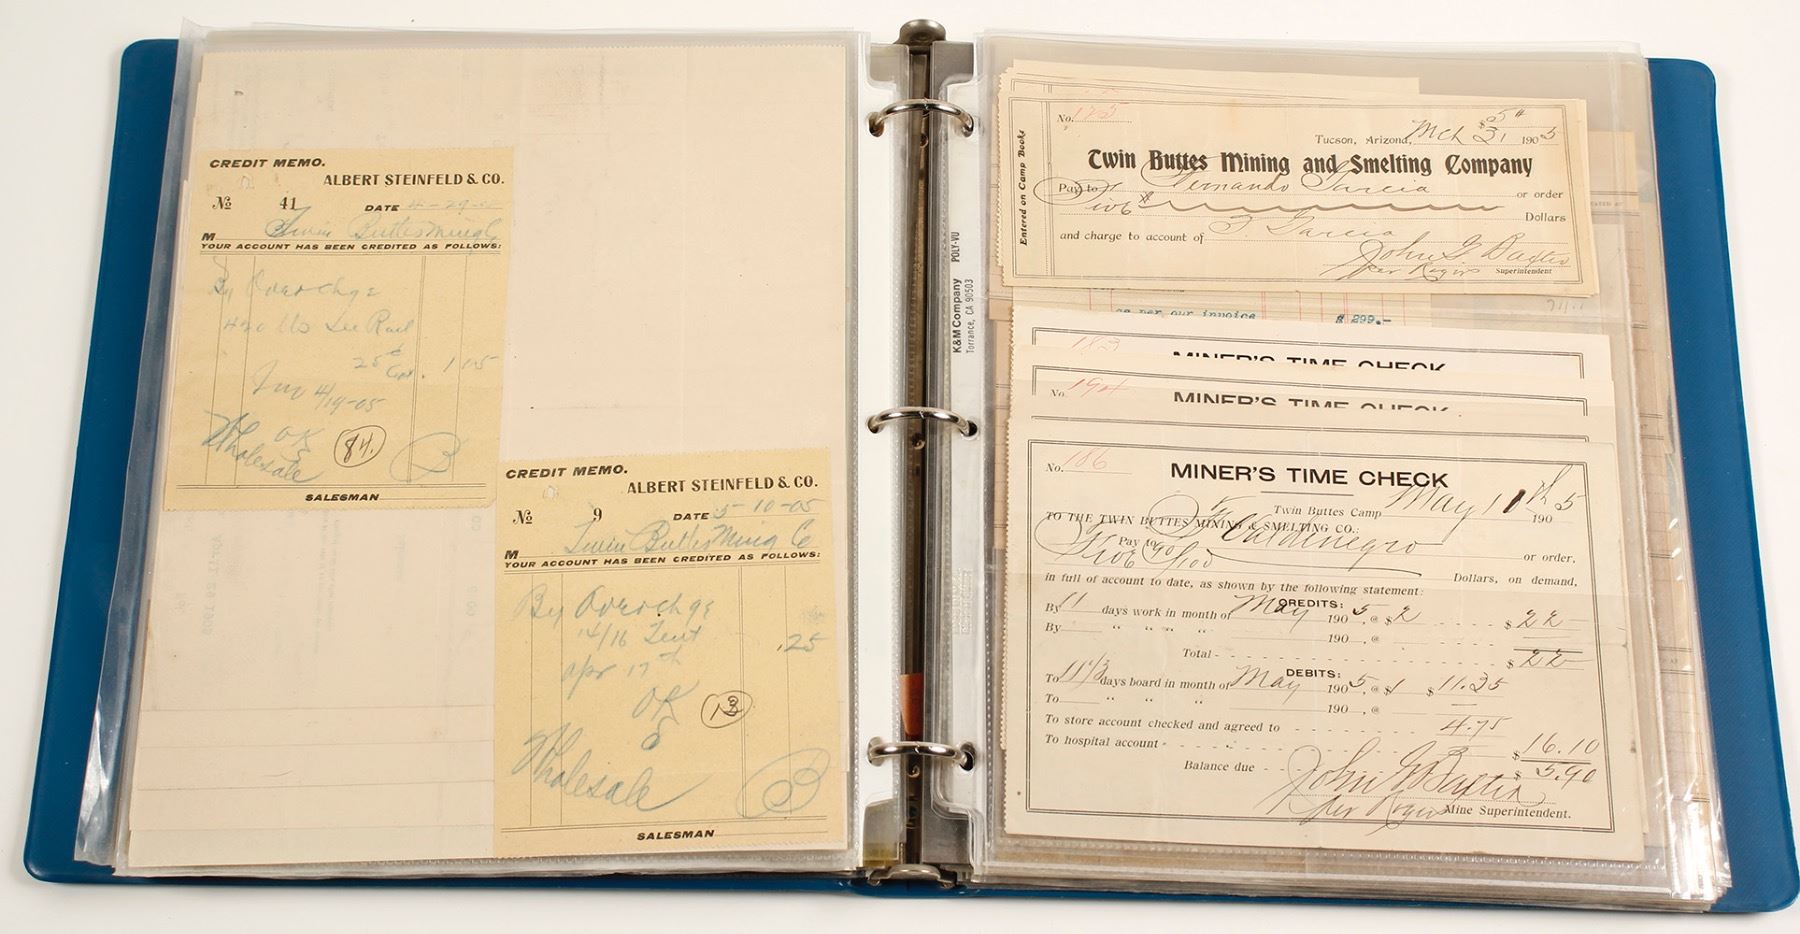 CREDIT MEMO.
ALBERT STEINFELD & CO.
No 41 DATE 4-29-05
M Twin Buttes Mining Co
YOUR ACCOUNT HAS BEEN CREDITED AS FOLLOWS:
By Overchge
420 lbs Rail
25¢ 1 15
Inv 4/19-05
OK
Wholesale
84.
B
SALESMAN
CREDIT MEMO.
ALBERT STEINFELD & CO.
No 9 DATE 5-10-05
M Twin Buttes Mining Co
YOUR ACCOUNT HAS BEEN CREDITED AS FOLLOWS:
By Overchge
14/16 Tent .25
Apr 17th
OK
13
Wholesale
B
SALESMAN
K&M Company POLY-VU
Torrance, CA 90503
No. 175
$5
Tucson, Arizona, Mch 31 1905
Entered on Camp Books
Twin Buttes Mining and Smelting Company
Pay to Fernando Garcia or order
Five Dollars
and charge to account of F Garcia
John G Baxter
per Rogers Superintendent
as per our invoice $ 299.-
183
MINER'S TIME CHECK
No. 194
MINER'S TIME CHECK
No. 186
MINER'S TIME CHECK
Twin Buttes Camp May 11th 1905
TO THE TWIN BUTTES MINING & SMELTING CO.:
Pay to Valdenegro or order,
Five 90/100 Dollars, on demand,
in full of account to date, as shown by the following statement:
CREDITS:
By 11 days work in month of May 1905, @ $2 $22
By " " " " 190 , @
Total $22
DEBITS:
To 11 1/3 days board in month of May 1905, @ $1 $11.35
To " " " 190 , @
To store account checked and agreed to 4.75
To hospital account $16.10
Balance due $5.90
John G Baxter
per Rogers Mine Superintendent.